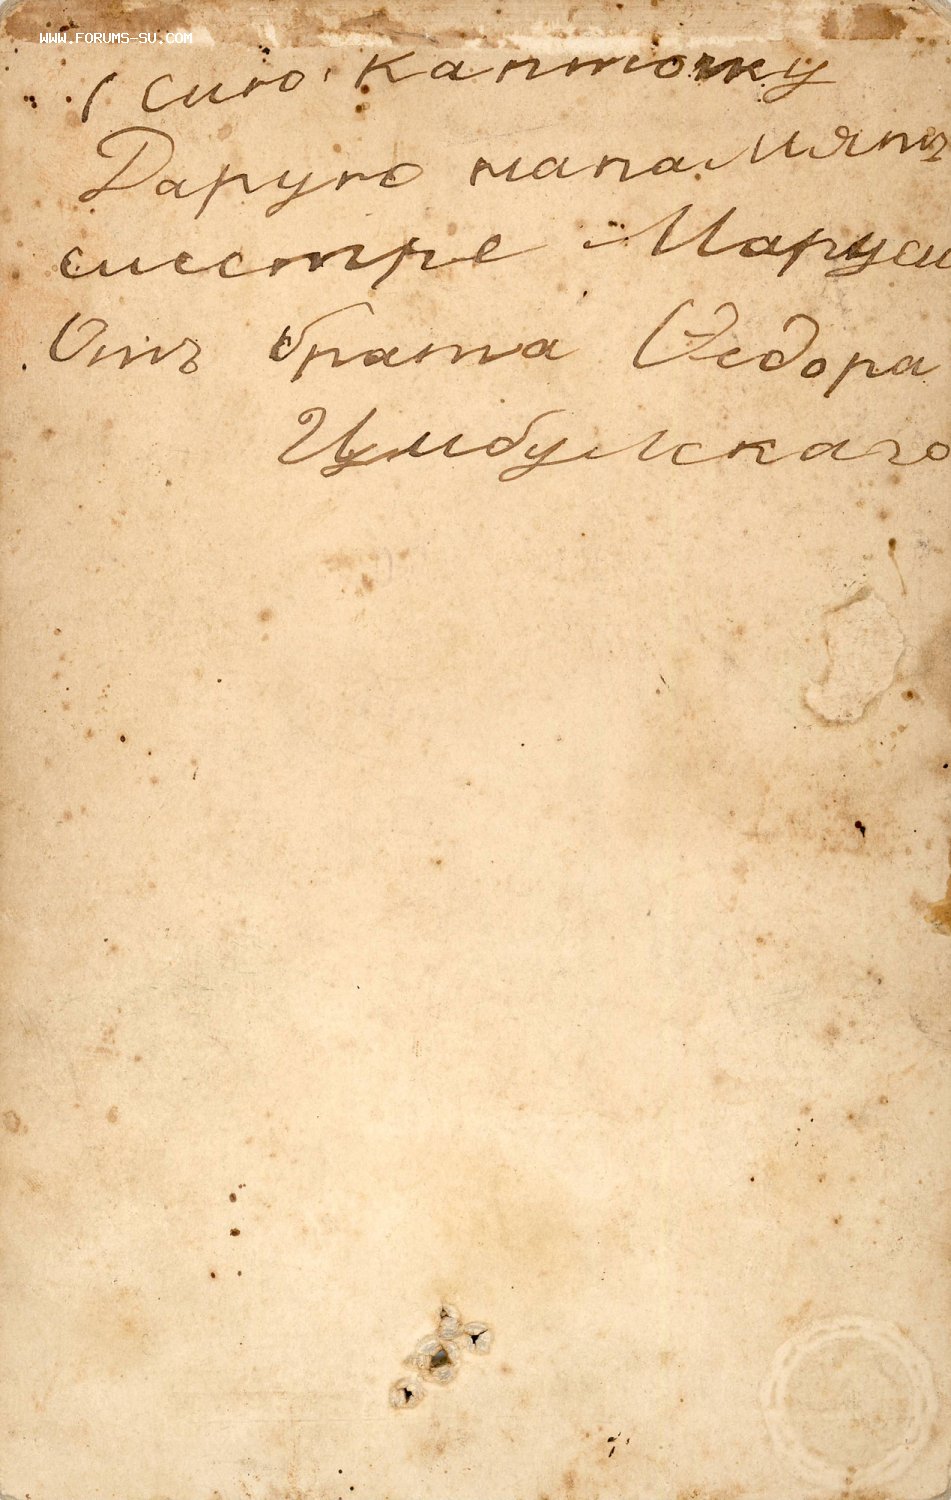 WWW.FORUMS-SU.COM
Сию капточку
Дарую напамять
сиестре Маруси
Отъ брата Ѳедора
Цымбульскаго